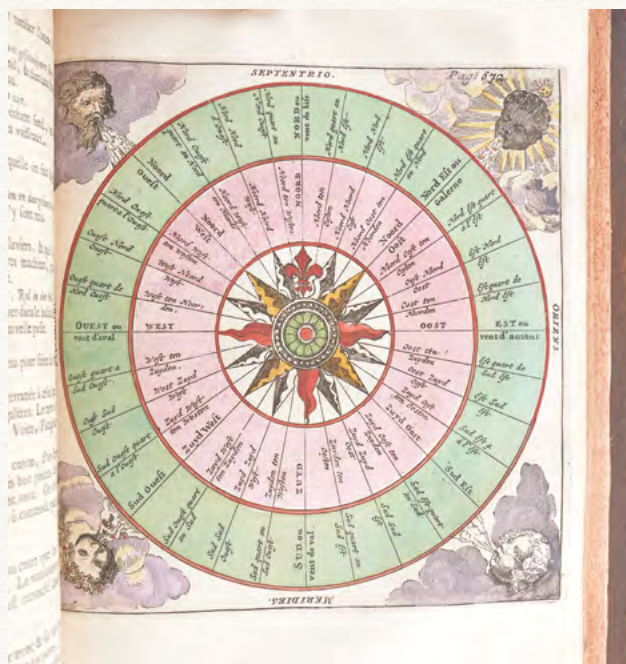 SEPTENTRIO.
Pag: 672
NORD ou
vent de bise
Nord quart au
Nord Est
Nord Nord
Est
Nord Est quart
au Nord
Nord Est ou
Galerne
Nord Est quart
à l'Est
Est Nord
Est
Est quart de
Nord Est
EST ou
vent d'amont
Est quart de
Sud Est
Est Sud
Est
Sud Est
Sud Est quart
au Sud
Sud Sud
Est
Sud quart au
Sud Est
SUD ou
vent de val
Sud quart au
Sud Ouest
Sud Sud
Ouest
Sud Ouest quart
au Sud
Sud Ouest
Sud Ouest quart
à l'Ouest
Ouest Sud
Ouest
Ouest quart à
Sud Ouest
OUEST ou
vent d'aval
Ouest quart de
Nord Ouest
Ouest Nord
Ouest
Nord Ouest
quart à l'Ouest
Noord
Ouest
Nord Ouest
quart au Nord
Nord Nord
Ouest
NOORD
Noord ten
Oosten
Noord Oost ten
Noorden
Noord
Oost
Noord Oost ten
Oosten
Oost Noord
Oost
Oost ten
Noorden
OOST
Oost ten
Zuyden
Oost Zuyd
Oost
Zuyd Oost
ten Oosten
Zuyd Oost
Zuyd Oost
ten Zuyden
Zuyd Zuyd
Oost
Zuyden ten
Oosten
ZUYD
Zuyden ten
Westen
Zuyd Zuyd
West
Zuyd West
ten Zuyden
Zuyd West
Zuyd West
ten Westen
West Zuyd
West
West ten
Zuyden
WEST
West ten Noor-
den
West Noord
West
Noord
West
ORIENS.
MERIDIES.